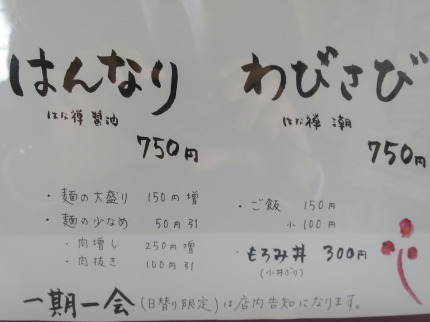 はんなり
はな禅 醤油
750円
・麺の大盛り 150円増
・麺の少なめ 50円引
・肉増し 250円増
・肉抜き 100円引
わびさび
はな禅 潮
750円
・ご飯 150円
小 100円
・もろみ丼 300円
(小丼ぶり)
一期一会(日替り限定)は店内告知になります。